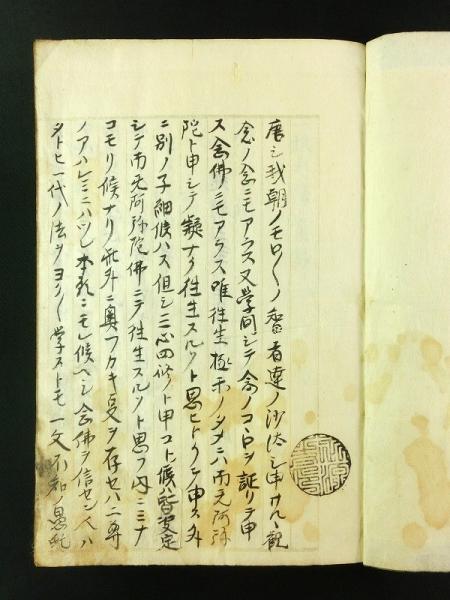 唐シ我朝ノモロ〳〵ノ智者達ノ沙汰シ申サルヽ觀
念ノ念ニモアラス又學問シテ念ノコヽロヲ証リテ申
ス念佛ニモアラス唯往生極樂ノタメニハ南无阿弥
陀ト申シテ疑ナク往生スルソト思ヒトリテ申ス外
ニ別ノ子細候ハス但シ三心四修ト申コト候ハ皆決定
シテ南无阿弥陀佛ニテ往生スルソト思フ内ニミナ
コモリ候ナリ此外ニ奧フカキ叓ヲ存セハ二尊
ノアハレミニハツレ本願ニモレ候ヘシ念佛ヲ信セン人ハ
タトヒ一代ノ法ヲヨク〳〵學ストモ一文不知ノ愚鈍